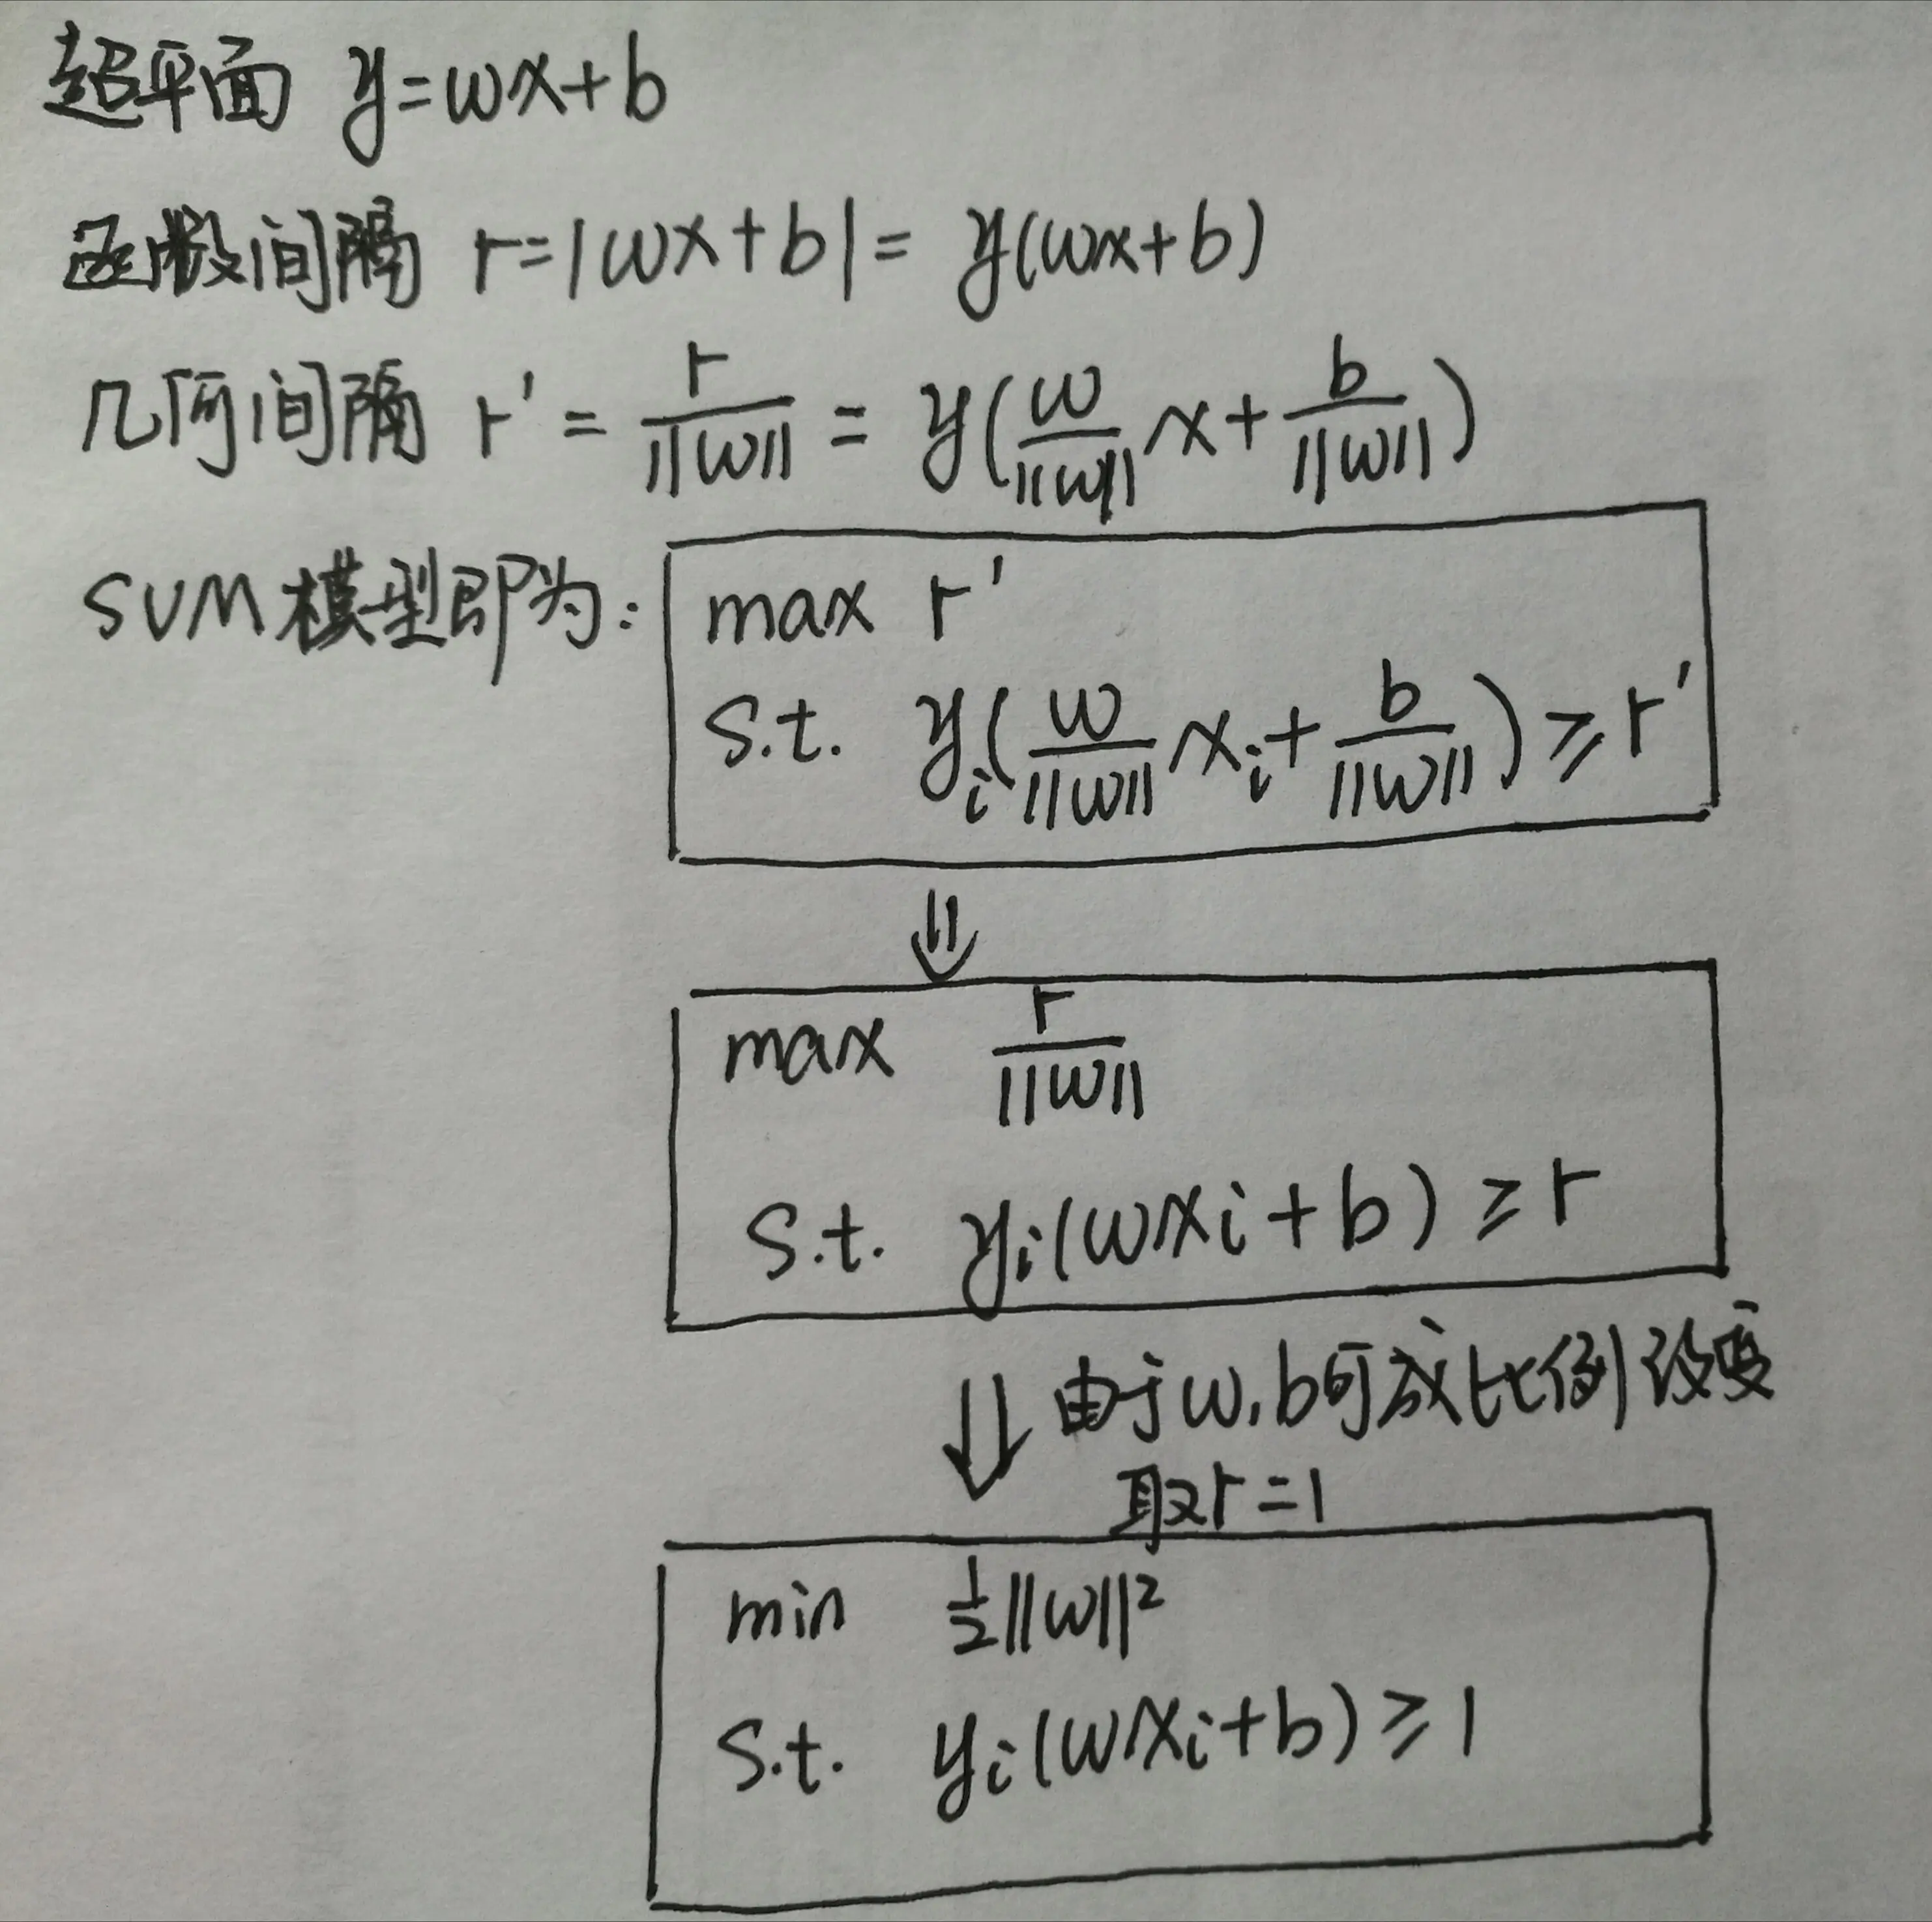 超平面 y=wx+b
函数间隔 r=|wx+b|=y(wx+b)
几何间隔 r'=r/||w||=y(w/||w|| x+b/||w||)
SVM模型即为:
max r'
s.t. yᵢ(w/||w|| xᵢ+b/||w||)≥r'
⇓
max r/||w||
s.t. yᵢ(wxᵢ+b)≥r
⇓ 由于w,b可成比例改变
取r=1
min ½||w||²
s.t. yᵢ(wxᵢ+b)≥1